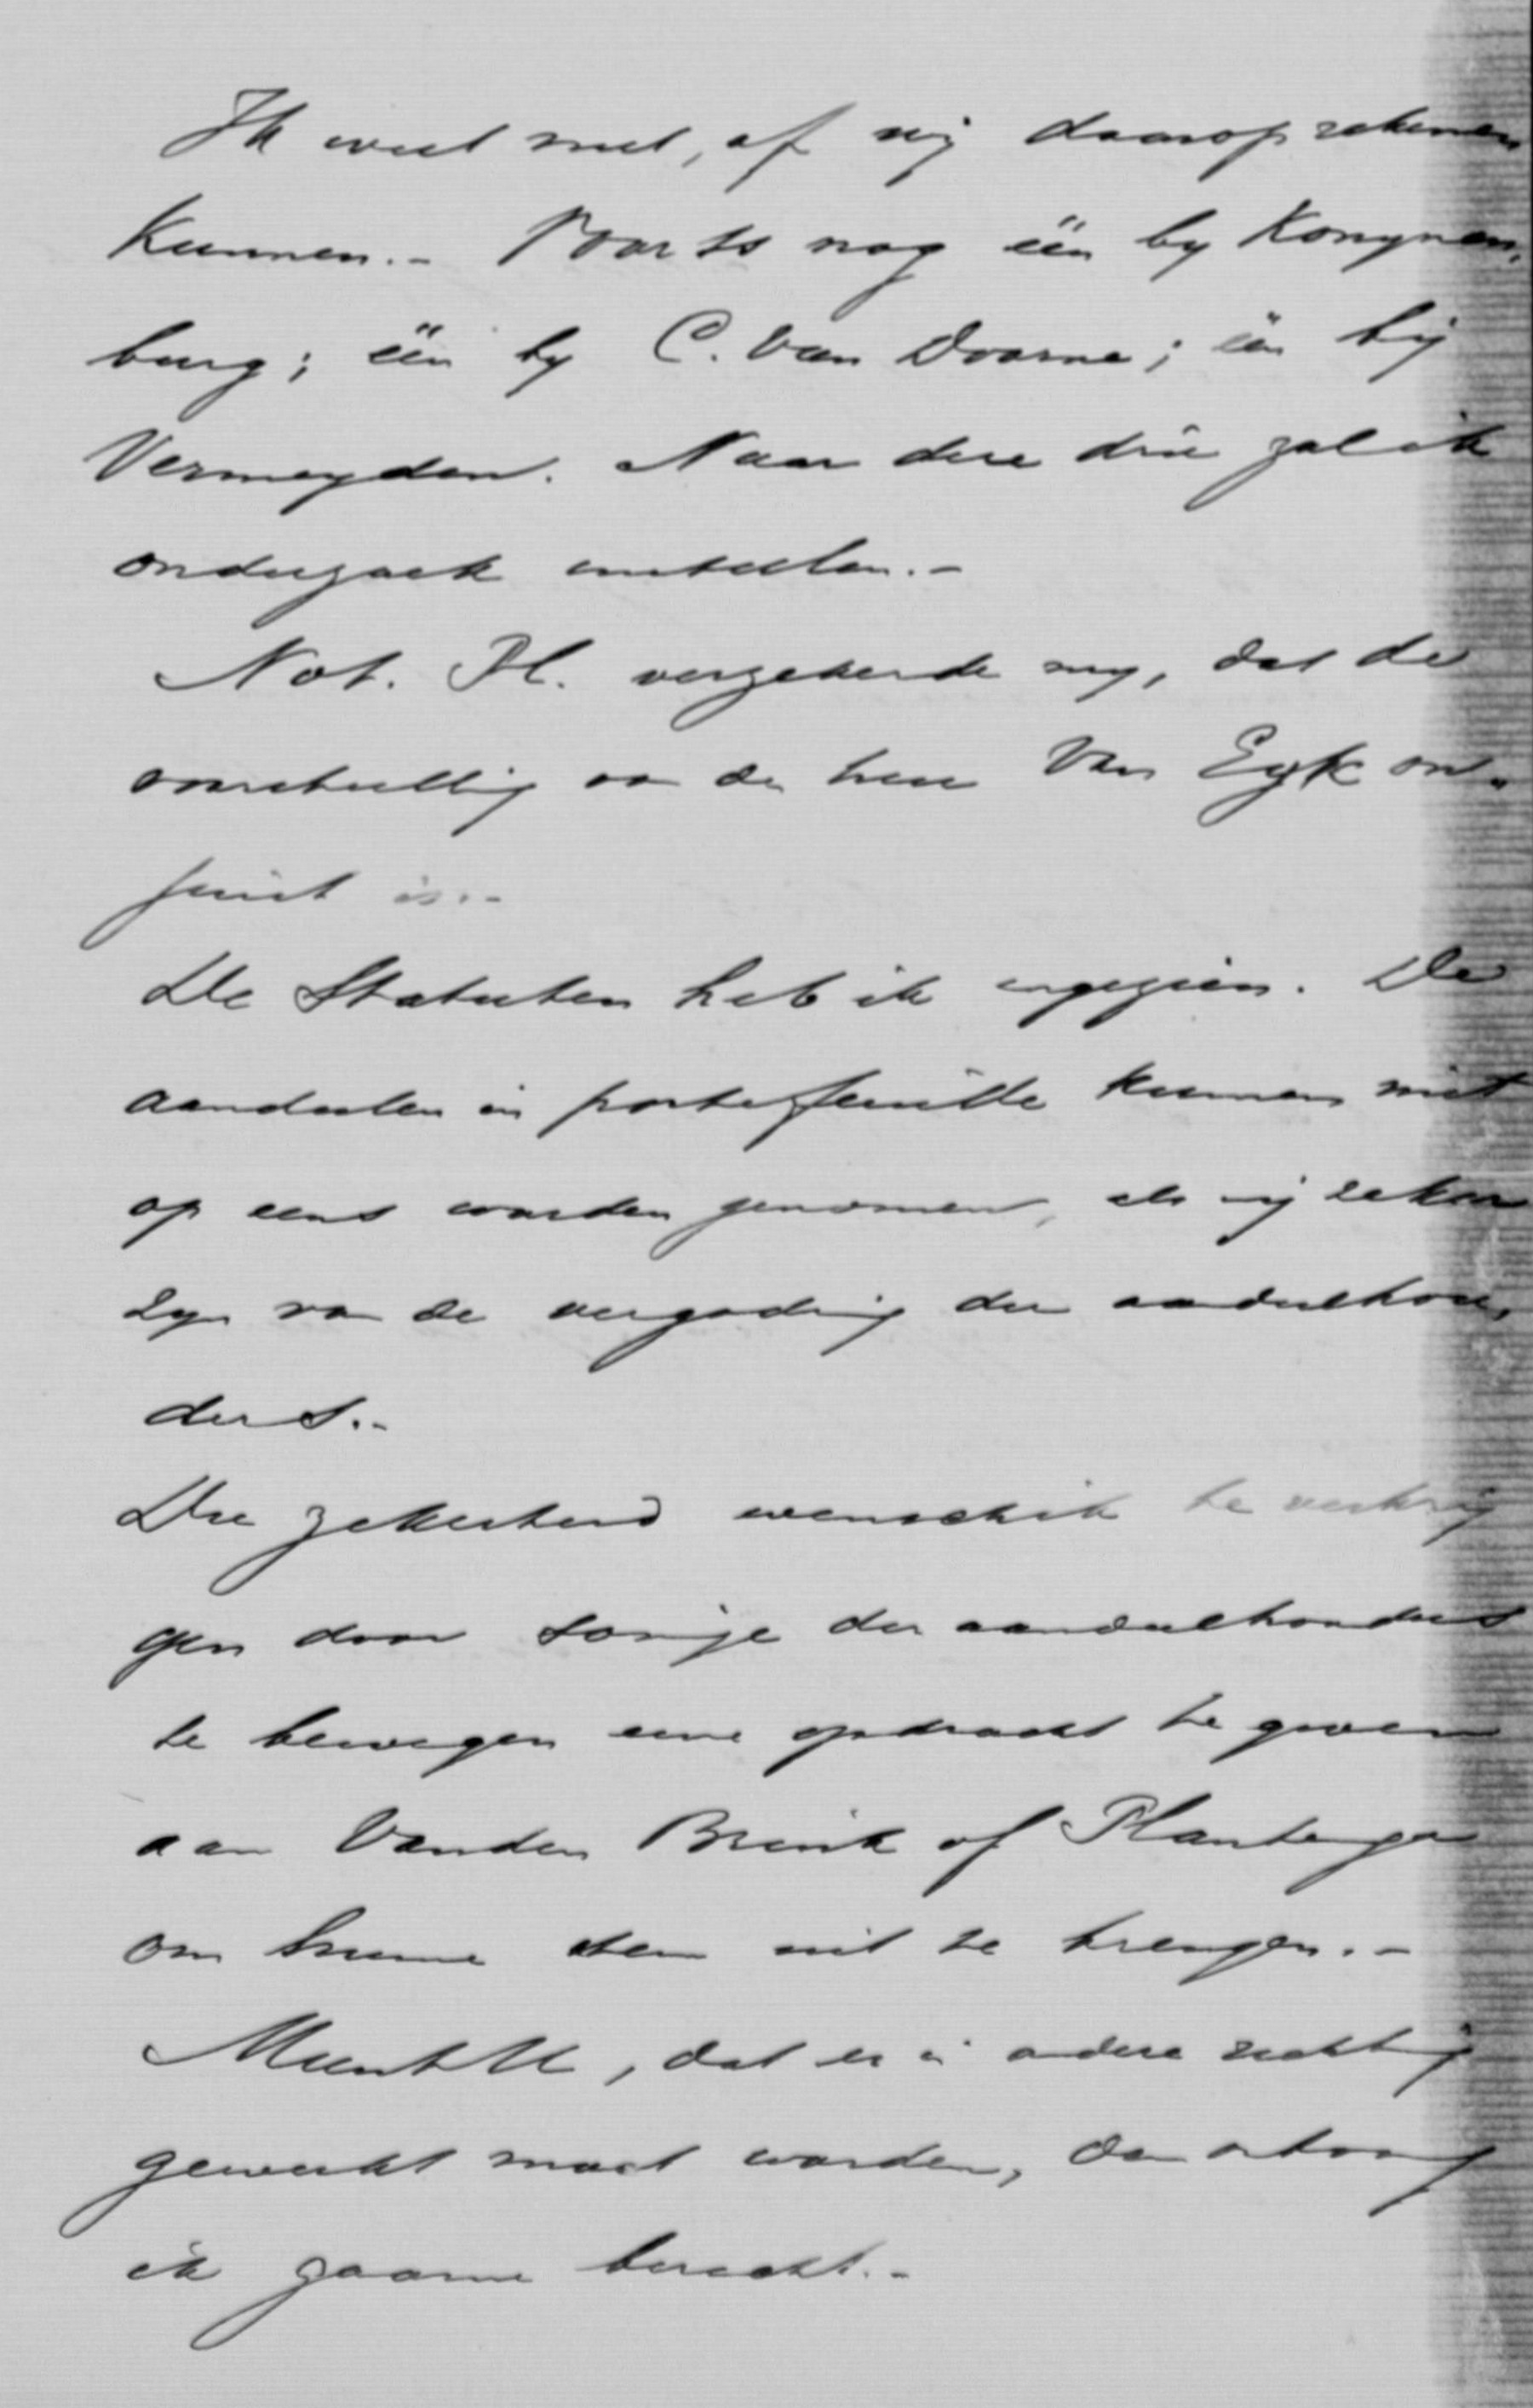 Ik weet niet, of wij daarop rekenen
kunnen.- Voorts nog één by Konynen,
burg; één by C. van Doorne; één bij
Vermeyden. Naar deze drie zal ik
onderzoek instellen.-
Not. Pl. verzekerde my, dat de
voorstelling van den heer Van Eyk on-
juist is.-
De Statuten heb ik ingezien. De
aandeelen in portefeuille kunnen niet
op eens worden genomen, als wij zeker
zyn van de vergadering der aandeelhou,
ders.-
Die zekerheid wensch ik te verkrij
gen door eenige der aandeelhouders
te bewegen eene opdracht te geven
aan Vanden Brink of Plantenga
om hunne stem uit te brengen.-
Meent U, dat er in andere richting
gewerkt moet worden, dan ontvang
ik gaarne bericht.-